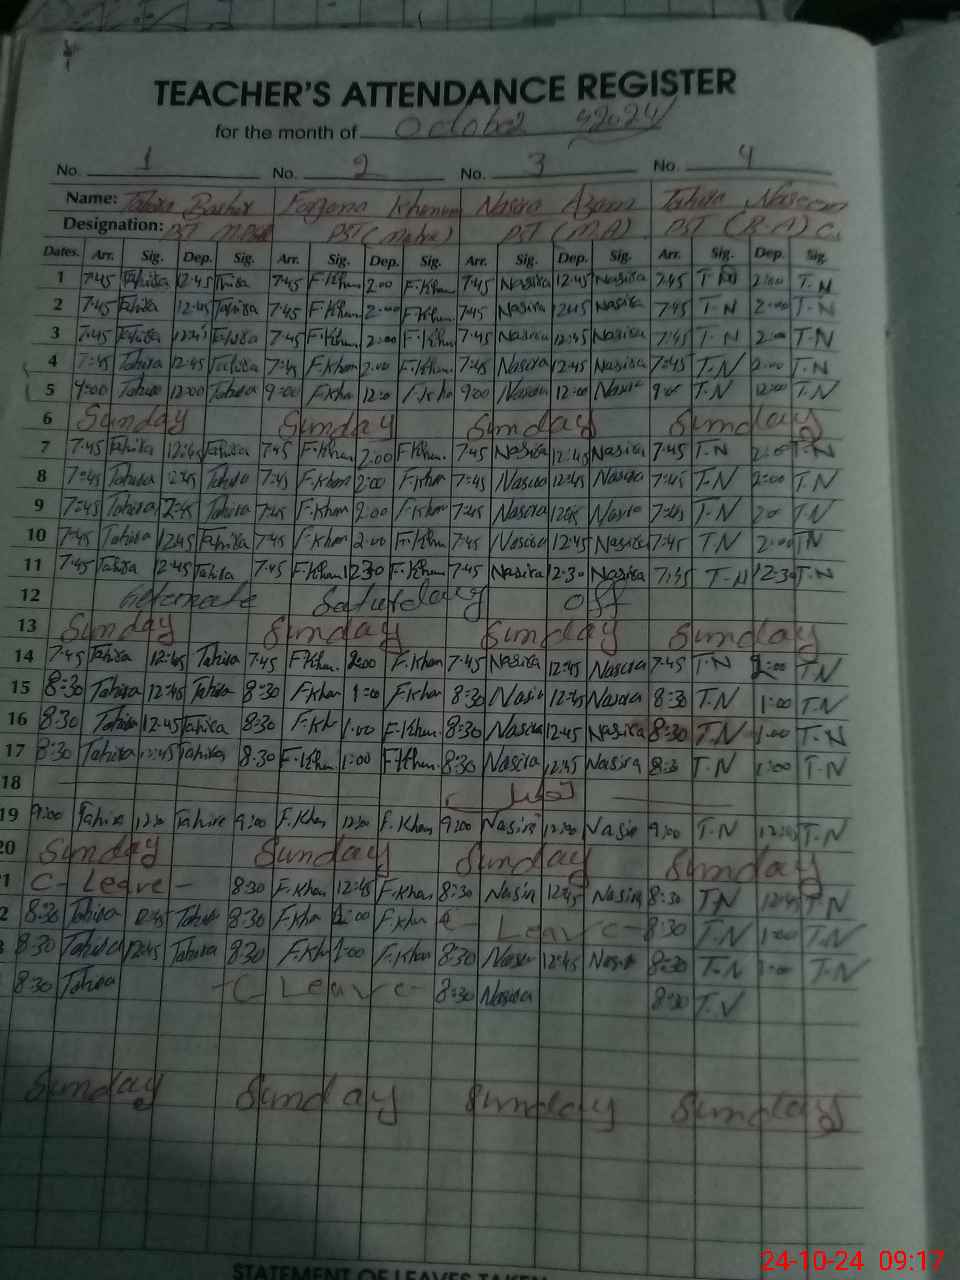 TEACHER'S ATTENDANCE REGISTER
for the month of October 2024
No. 1 No. 2 No. 3 No. 4
Name: Tahira Bashir Farzana Khanum Nasira Azam Tahira Naseem
Designation: PST PST ( PST (M.A) PST (B.A)
Dates. Arr. Sig. Dep. Sig. Arr. Sig. Dep. Sig. Arr. Sig. Dep. Sig. Arr. Sig. Dep. Sig.
1 7:45 Tahira 12:45 Tahira 7:45 F.Khan 2:00 F.Khan 7:45 Nasira 12:45 Nasira 7:45 T.N 2:00 T.N
2 7:45 Tahira 12:45 Tahira 7:45 F.Khan 2:00 F.Khan 7:45 Nasira 12:45 Nasira 7:45 T-N 2:00 T-N
3 7:45 Tahira 12:45 Tahira 7:45 F.Khan 2:00 F.Khan 7:45 Nasira 12:45 Nasira 7:45 T-N 2:00 T-N
4 7:45 Tahira 12:45 Tahira 7:45 F.Khan 2:00 F.Khan 7:45 Nasira 12:45 Nasira 7:45 T.N 2:00 T.N
5 9:00 Tahira 12:00 Tahira 9:00 F.Khan 12:00 F.Khan 9:00 Nasira 12:00 Nasira 9:00 T.N 12:00 T.N
6 Sunday Sunday Sunday Sunday
7 7:45 Tahira 12:45 Tahira 7:45 F.Khan 2:00 F.Khan. 7:45 Nasira 12:45 Nasira 7:45 T.N 2:00 T.N
8 7:45 Tahira 12:45 Tahira 7:45 F.Khan 2:00 F.Khan 7:45 Nasira 12:45 Nasira 7:45 T.N 2:00 T.N
9 7:45 Tahira 2:45 Tahira 7:45 F.Khan 2:00 F.Khan 7:45 Nasira 12:45 Nasira 7:45 T.N 2:00 T.N
10 7:45 Tahira 12:45 Tahira 7:45 F.Khan 2:00 F.Khan 7:45 Nasira 12:45 Nasira 7:45 T.N 2:00 T.N
11 7:45 Tahira 12:45 Tahira 7:45 F.Khan 12:30 F.Khan 7:45 Nasira 12:30 Nasira 7:45 T-N 12:30 T-N
12 Alternate Saturday off
13 Sunday Sunday Sunday Sunday
14 7:45 Tahira 12:45 Tahira 7:45 F.Khan. 2:00 F.Khan 7:45 Nasira 12:45 Nasira 7:45 T.N 2:00 T.N
15 8:30 Tahira 12:45 Tahira 8:30 F.Khan 1:00 F.Khan 8:30 Nasir 12:45 Nasira 8:30 T.N 1:00 T.N
16 8:30 Tahira 12:45 Tahira 8:30 F.Kh 1:00 F.Khan. 8:30 Nasira 12:45 Nasira 8:30 T.N 1:00 T-N
17 8:30 Tahira 12:45 Tahira 8:30 F.Khan 1:00 F.Khan. 8:30 Nasira 12:45 Nasira 8:30 T.N 1:00 T.N
18 تعطیل
19 9:00 Tahira 12:00 Tahira 9:00 F.Khan 12:00 F.Khan 9:00 Nasir 12:00 Nasir 9:00 T.N 12:00 T.N
20 Sunday Sunday Sunday Sunday
1 C- Leave - 8:30 F.Khan 12:45 F.Khan 8:30 Nasir 12:45 Nasira 8:30 T.N 12:45 T.N
2 8:30 Tahira 12:45 Tahira 8:30 F.Kha 1:00 F.Kha C- Leave - 8:30 T.N 1:00 T.N
3 8:30 Tahira 12:45 Tahira 8:30 F.Kh 1:00 F.Khan 8:30 Nasir 12:45 Nasir 8:30 T.N 1:00 T.N
8:30 Tahira - C Leave - 8:30 Nasira 8:30 T.N
Sunday Sunday Sunday Sunday
STATEMENT OF LEAVES TAKEN
24-10-24 09:17